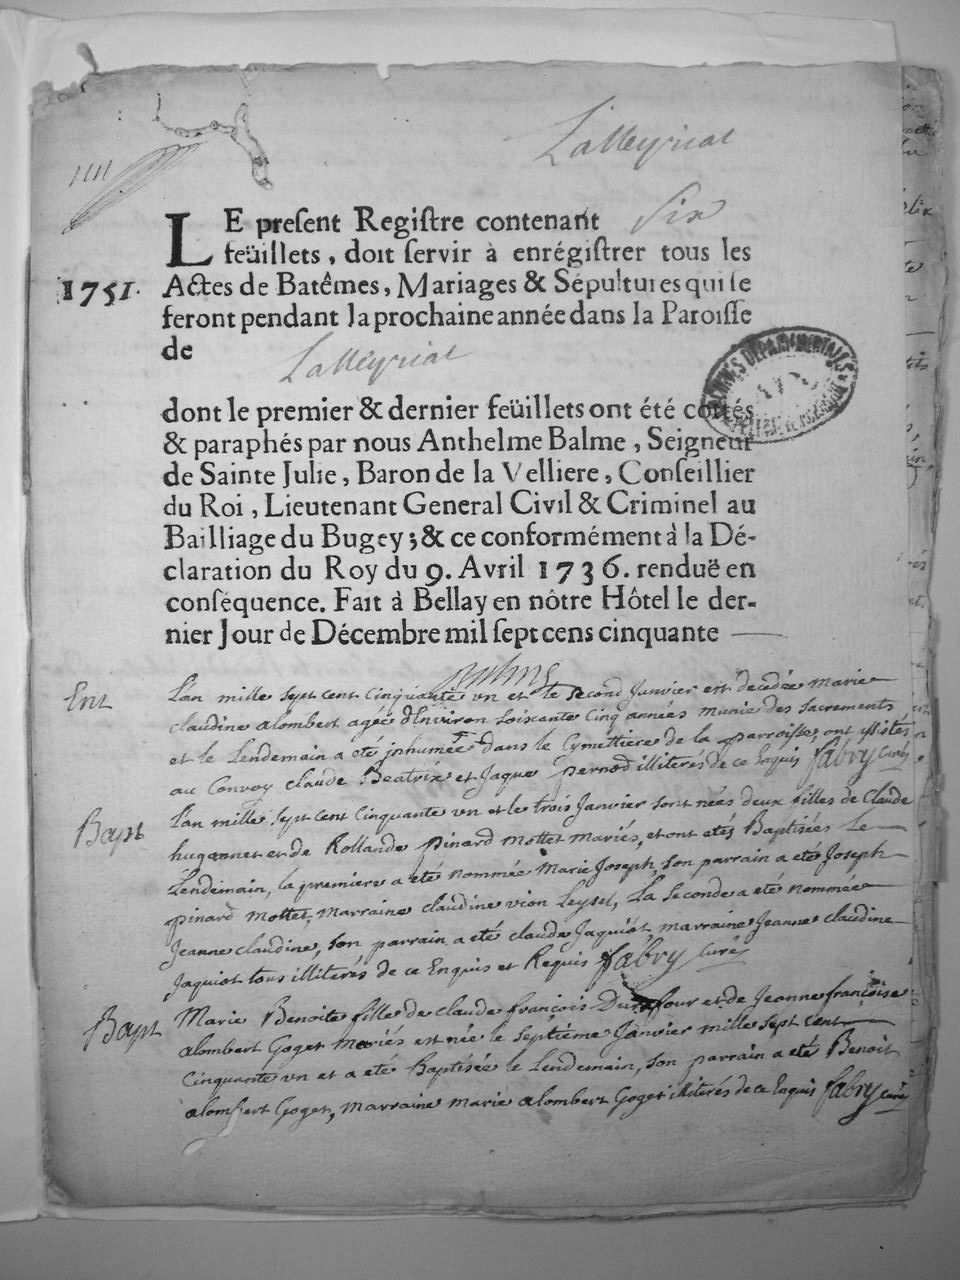 Lalleyriat
LE present Registre contenant six
feüillets, doit servir à enrégistrer tous les
1751. Actes de Batêmes, Mariages & Sépultures qui se
feront pendant la prochaine année dans la Paroisse
de Lalleyriat
dont le premier & dernier feüillets ont été cottés
& paraphés par nous Anthelme Balme, Seigneur
de Sainte Julie, Baron de la Velliere, Conseillier
du Roi, Lieutenant General Civil & Criminel au
Bailliage du Bugey; & ce conformément à la Dé-
claration du Roy du 9. Avril 1736. renduë en
conséquence. Fait à Bellay en nôtre Hôtel le der-
nier Jour de Décembre mil sept cens cinquante
Ent L'an mille sept cent cinquante un et le second Janvier est decedée marie
claudine alombert agée d'Environ soiscante cinq années munie des sacrements
et le Lendemain a eté jnhumée dans le Cymettiere de la parroisse, ont assistés
au Convoy claude Beatrix et Jaque pernod illiterés de ce Enquis fabry Curé
Bapt L'an mille sept cent cinquante un et le trois Janvier sont nées deux filles de Claude
hugonnet et de Rollande pinard mottet mariés, et ont etés Baptisées Le
Lendemain, la premiere a eté nommée Marie Joseph, son parrain a eté Joseph
pinard mottet, marraine claudine vion Leysel, La seconde a eté nommée
Jeanne claudine, son parrain a eté claude Jaquiot marraine Jeanne claudine
Jaquiot tous illiterés de ce Enquis et Requis fabry Curé
Bapt Marie Benoite fille de claude françois Dufour et de Jeanne françoise
alombert Goget mariés est née le septieme Janvier mille sept cent
cinquante un et a eté Baptisée le Lendemain, son parrain a eté Benoit
alombert Goget, marraine marie alombert Goget illiterés de ce Enquis fabry curé